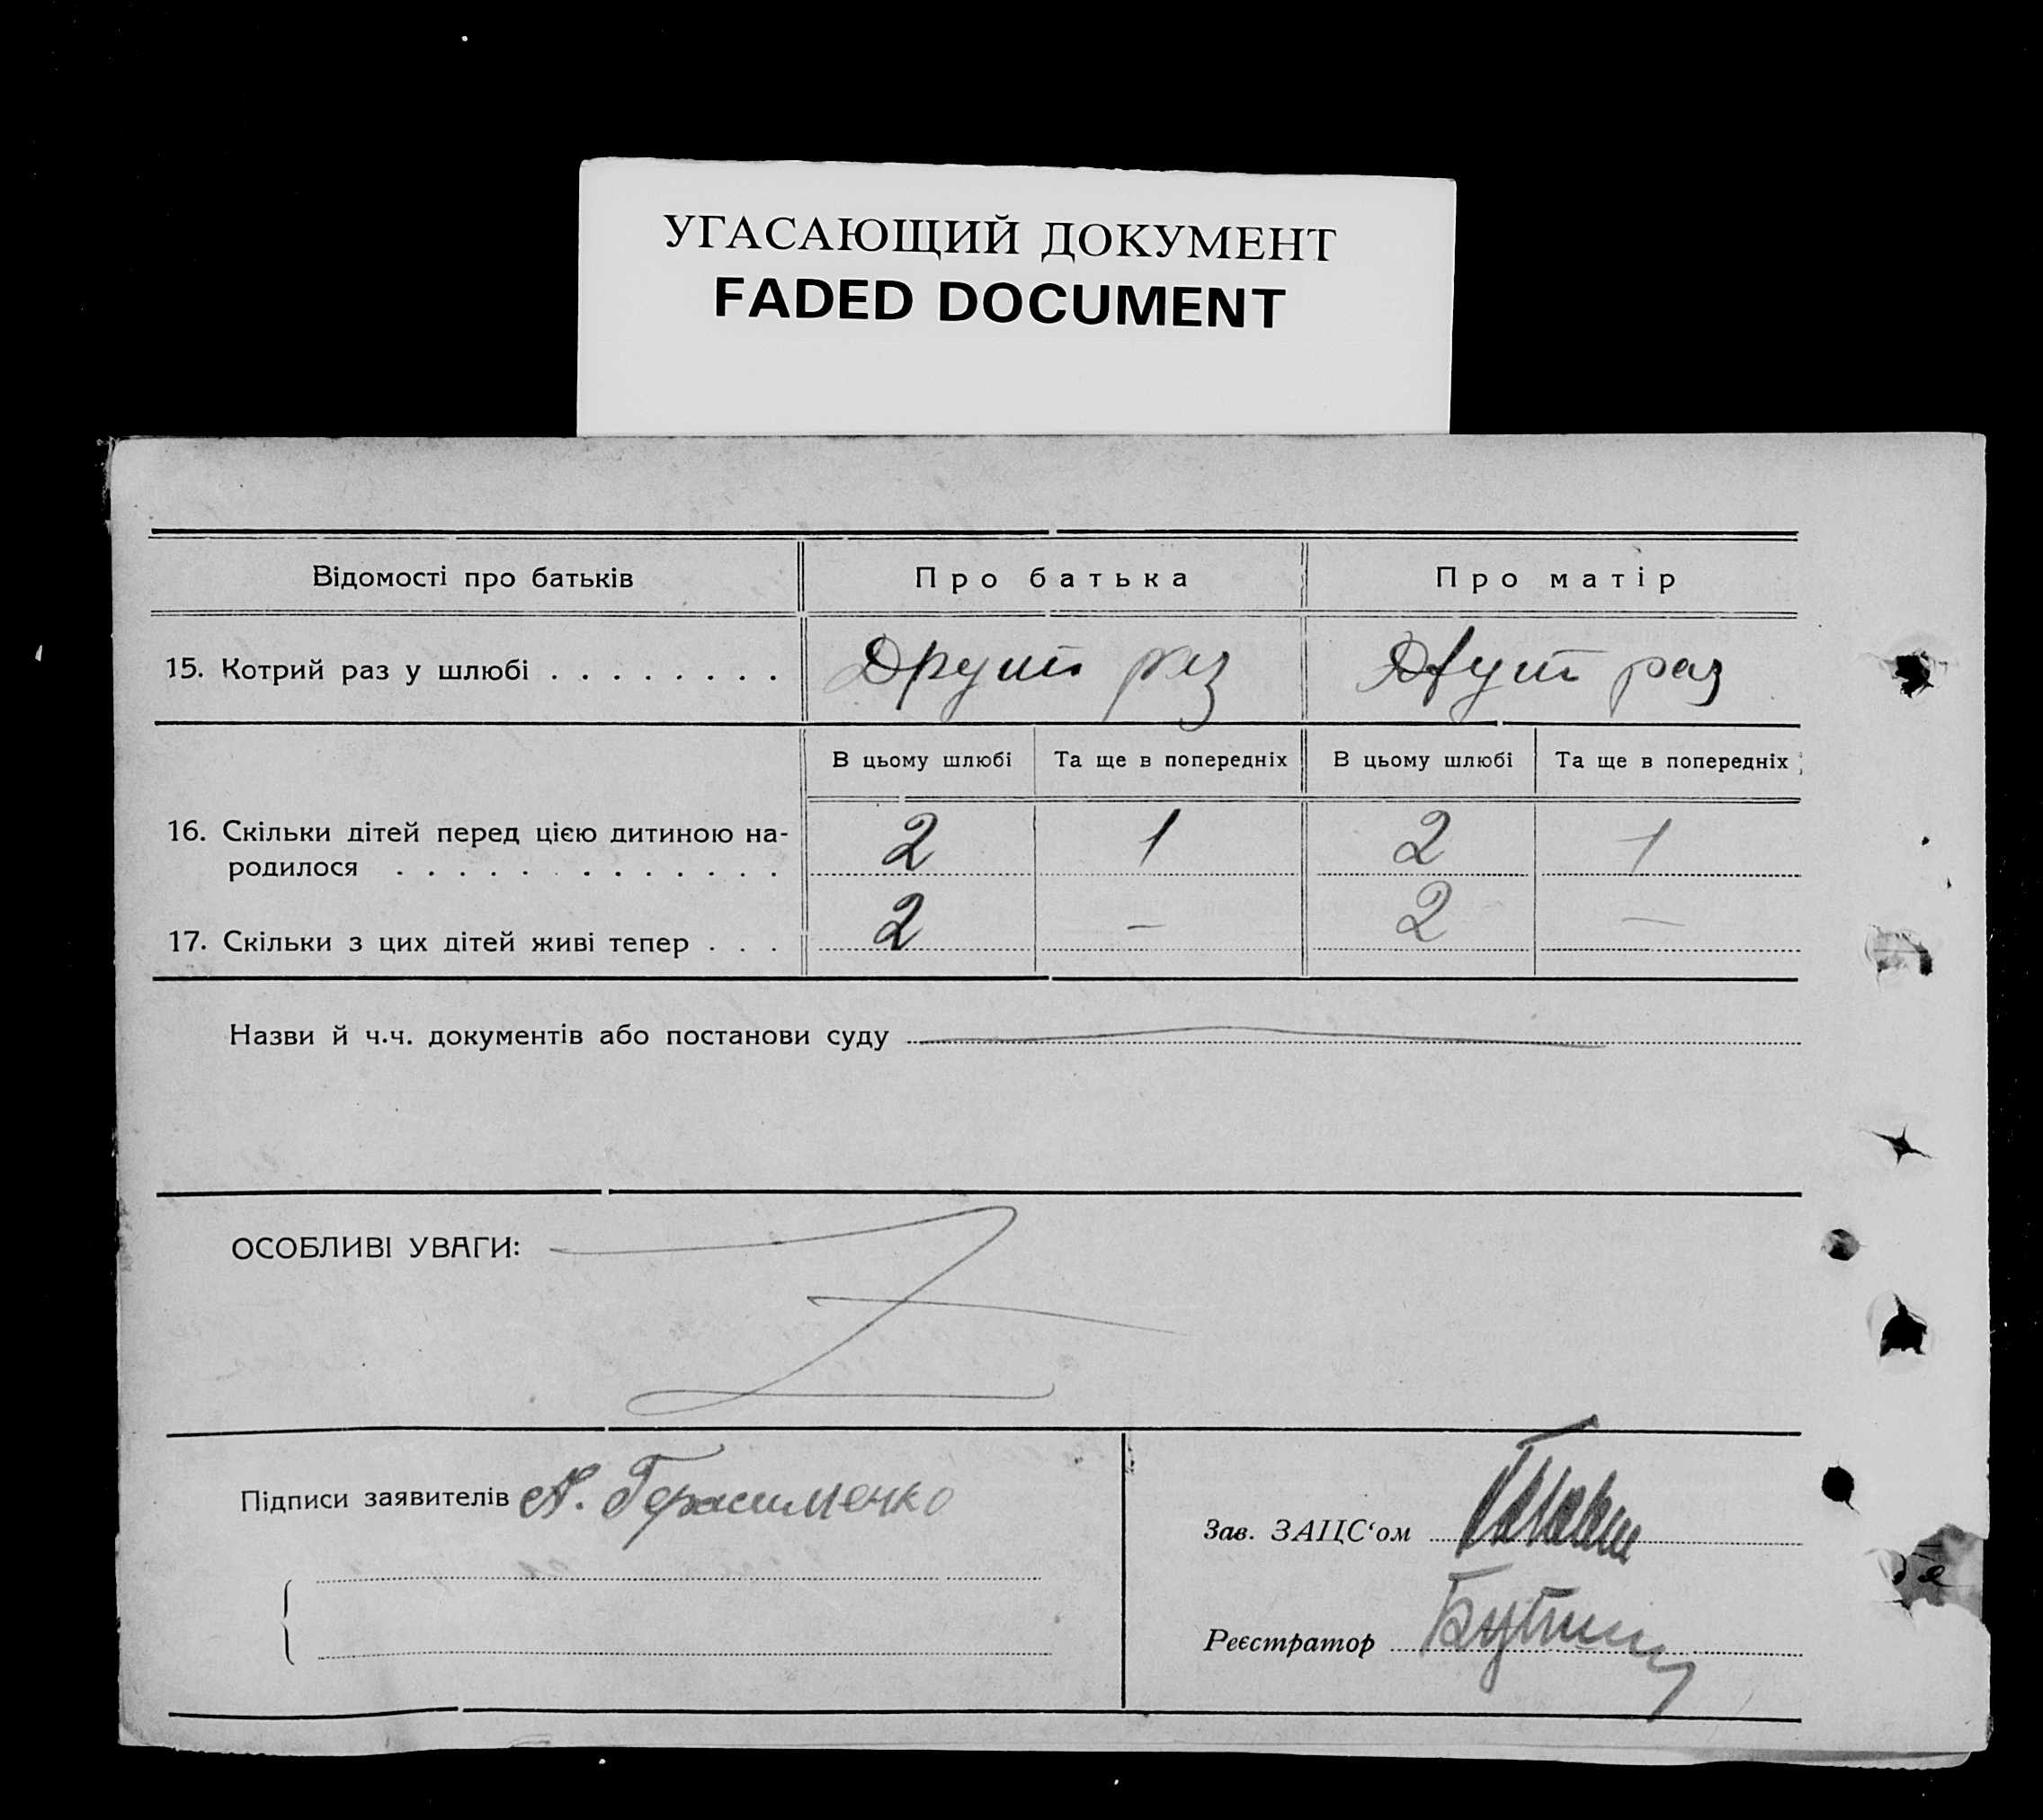 УГАСАЮЩИЙ ДОКУМЕНТ
FADED DOCUMENT
Відомості про батьків Про батька Про матір
15. Котрий раз у шлюбі . . . . . . . . Другий раз Другий раз
В цьому шлюбі Та ще в попередніх В цьому шлюбі Та ще в попередніх
16. Скільки дітей перед цією дитиною на-
родилося . . . . . . . . . . . . . 2 1 2 1
17. Скільки з цих дітей живі тепер . . . 2 — 2 —
Назви й ч.ч. документів або постанови суду
ОСОБЛИВІ УВАГИ:
Підписи заявителів А. Герасименко
Зав. ЗАЦС‘ом
Реєстратор